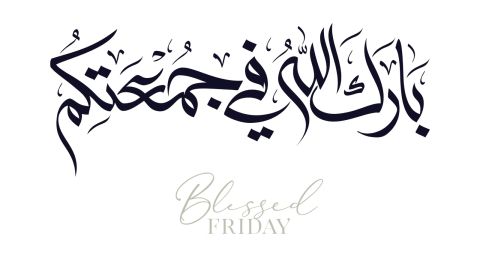 بَارَكَ اللّٰهُ فِي جُمُعَتِكُم
Blessed
FRIDAY